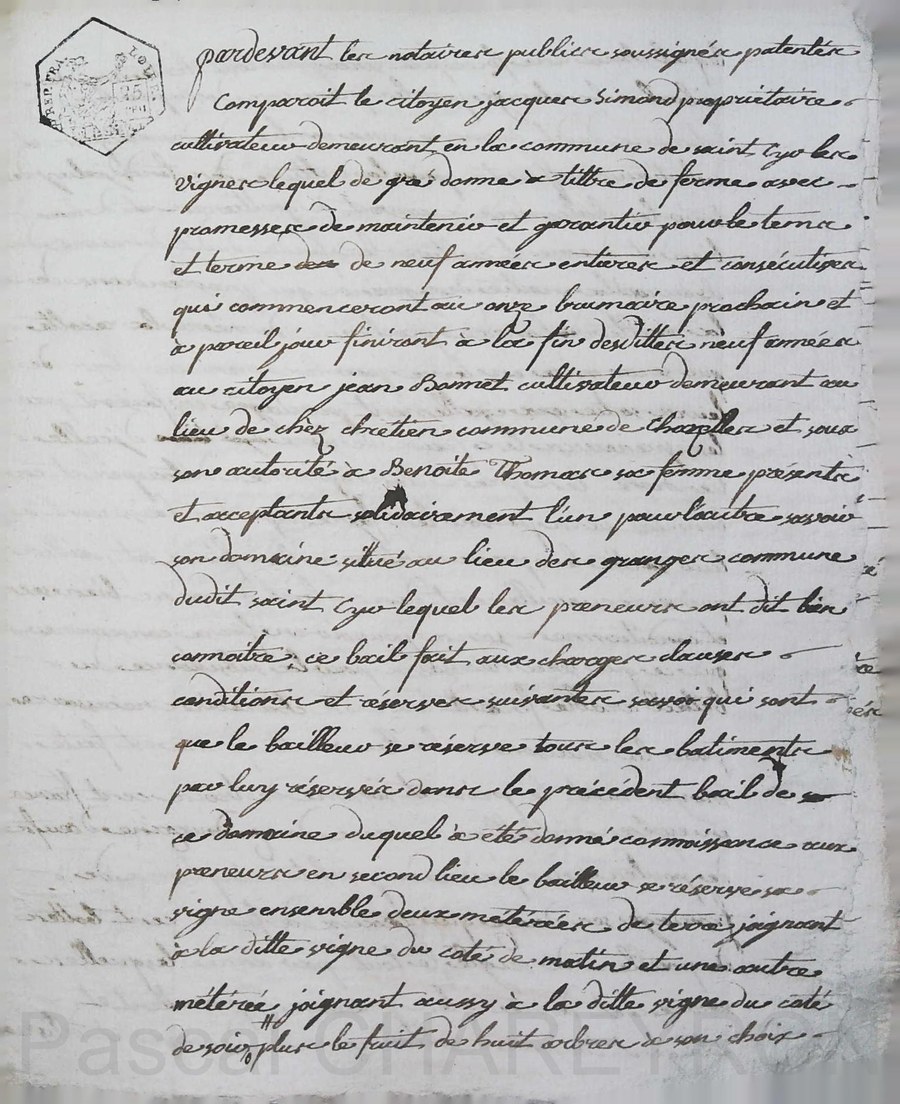 pardevant les notaires publics soussignés patentés
Comparoit le citoyen jacques Simond propriétaire
cultivateur demeurant en la commune de saint Cyr les
Vignes lequel de gré donne a tittre de ferme avec
promesses de maintenir et garantir pour le tems
et terme de neuf années entieres et consécutives
qui commenceront au onze brumaire prochain et
à pareil jour finiront à la fin desdittes neuf années
au citoyen jean Bonnet cultivateur demeurant au
lieu de chez chretien commune de Chazelles et sous
son autorité à Benoite Thomas sa femme présents
et acceptants solidairement l'un pour l'autre savoir
son domaine situé au lieu des granges commune
dudit saint Cyr lequel les preneurs ont dit bien
connoitre, ce bail fait aux charges clauses
conditions et réserves suivantes savoir qui sont
que le bailleur se réserve tous les batiments
par luy réservés dans le précédent bail de
ce domaine duquel à été donné connoissance aux
preneurs en second lieu le bailleur se réserve sa
vigne ensemble deux meterées de terre joignant
à la ditte vigne du coté de matin et une autre
métérée joignant aussy à la ditte vigne du coté
de soir, plus le fruit de huit arbres à son choix
Pascal CHAREYRON